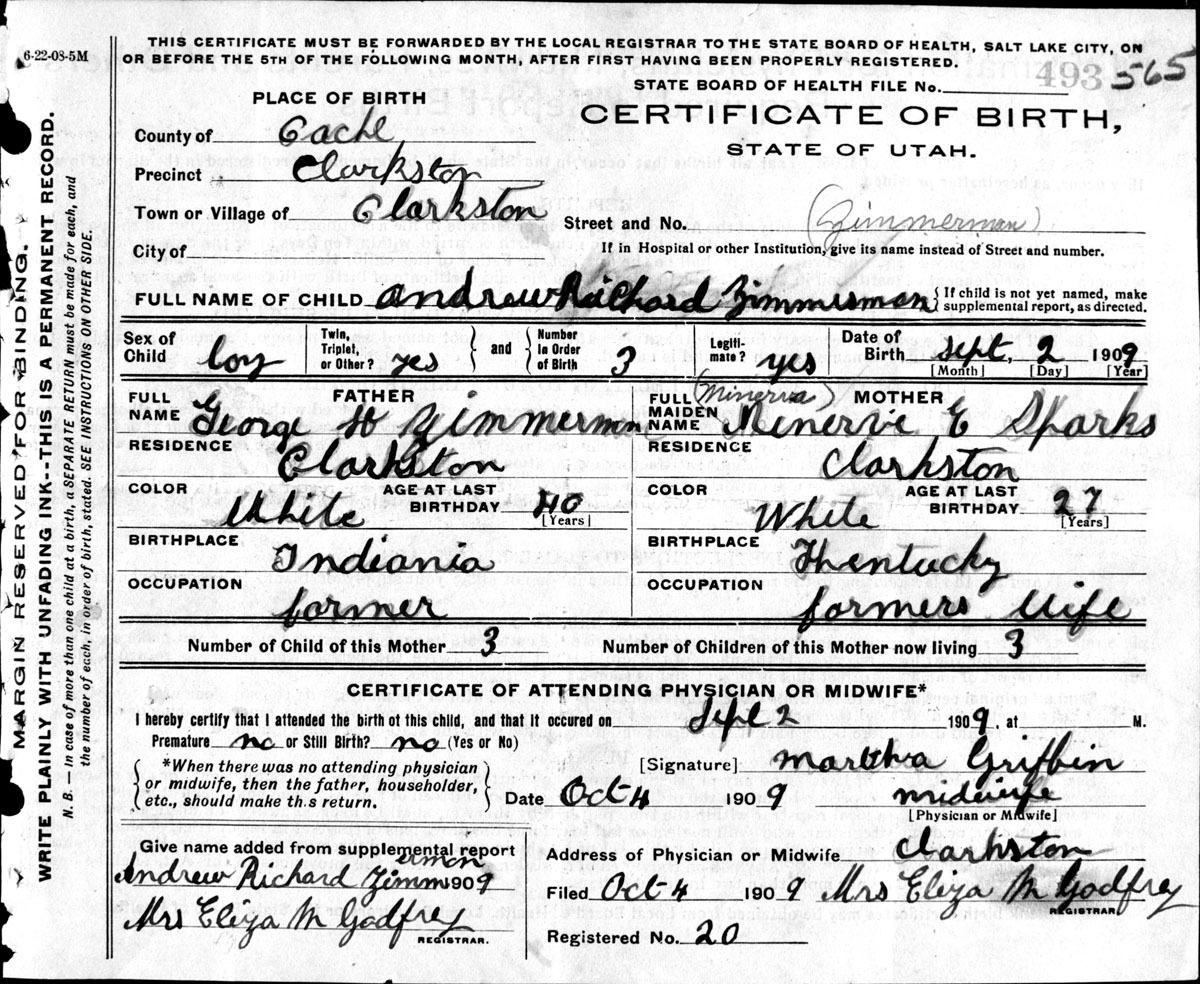 6-22-08-5M
THIS CERTIFICATE MUST BE FORWARDED BY THE LOCAL REGISTRAR TO THE STATE BOARD OF HEALTH, SALT LAKE CITY, ON
OR BEFORE THE 5TH OF THE FOLLOWING MONTH, AFTER FIRST HAVING BEEN PROPERLY REGISTERED.
STATE BOARD OF HEALTH FILE No. 493 565
PLACE OF BIRTH
CERTIFICATE OF BIRTH,
STATE OF UTAH.
County of Cache
Precinct Clarkston
Town or Village of Clarkston
Street and No. (Zimmerman)
City of
If in Hospital or other Institution, give its name instead of Street and number.
FULL NAME OF CHILD andrew Richard Zimmerman { If child is not yet named, make supplemental report, as directed.
Sex of Child boy Twin, Triplet, or Other? yes } and { Number in Order of Birth 3 Legiti-mate? yes Date of Birth Sept, 2 1909
[Month] [Day] [Year]
FULL NAME FATHER
George H Zimmerman
RESIDENCE
Clarkston
COLOR White AGE AT LAST BIRTHDAY 40
[Years]
BIRTHPLACE
Indiania
OCCUPATION
former
FULL MAIDEN NAME (Minerva) MOTHER
Menervie E Sparks
RESIDENCE
Clarkston
COLOR White AGE AT LAST BIRTHDAY 27
[Years]
BIRTHPLACE
Kentucky
OCCUPATION
formers Wife
Number of Child of this Mother 3
Number of Children of this Mother now living 3
CERTIFICATE OF ATTENDING PHYSICIAN OR MIDWIFE*
I hereby certify that I attended the birth of this child, and that it occured on Sept 2 1909, at M.
Premature no or Still Birth? no (Yes or No)
*When there was no attending physician
or midwife, then the father, householder,
etc., should make this return.
[Signature] marthva Griffin
Date Oct 4 1909 midwife
[Physician or Midwife]
Give name added from supplemental report
Andrew Richard Zimmerman 1909
Mrs Eliza M Godfrey
REGISTRAR.
Address of Physician or Midwife Clarkston
Filed Oct 4 1909 Mrs Eliza M Godfrey
REGISTRAR
Registered No. 20
MARGIN RESERVED FOR BINDING.
WRITE PLAINLY WITH UNFADING INK--THIS IS A PERMANENT RECORD.
N. B.—In case of more than one child at a birth, a SEPARATE RETURN must be made for each, and
the number of each, in order of birth, stated. SEE INSTRUCTIONS ON OTHER SIDE.